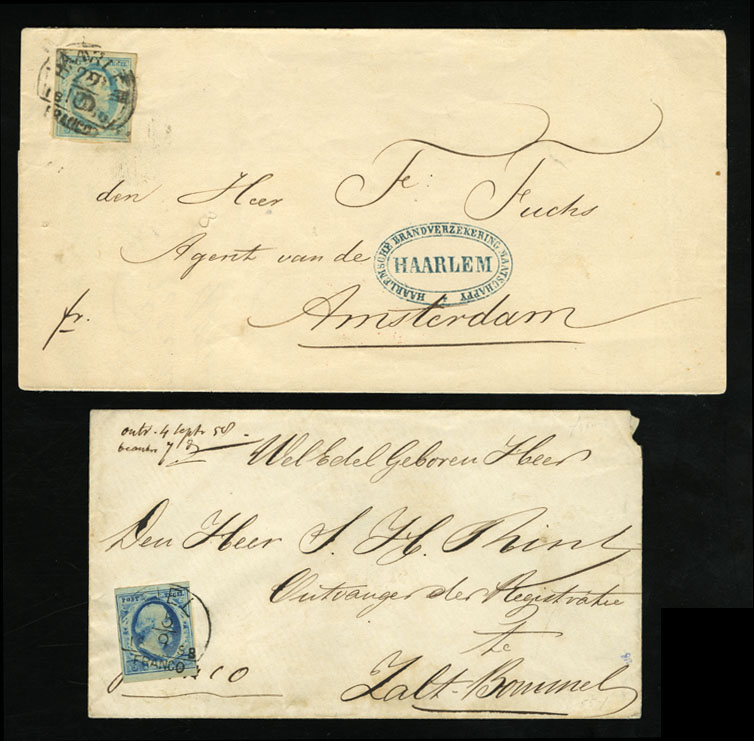 HAARLEM
29
FRANCO
den Heer Fe: Fuchs
Agent van de
HAARLEMSCHE BRANDVERZEKERING MAATSCHAPPY
HAARLEM
fr.
Amsterdam
ontv. 4 Sept. 58.
WelEdelGeboren Heer
Den Heer S. H.
Ontvanger der Registratie
te
Zalt-Bommel
3
9
58
FRANCO